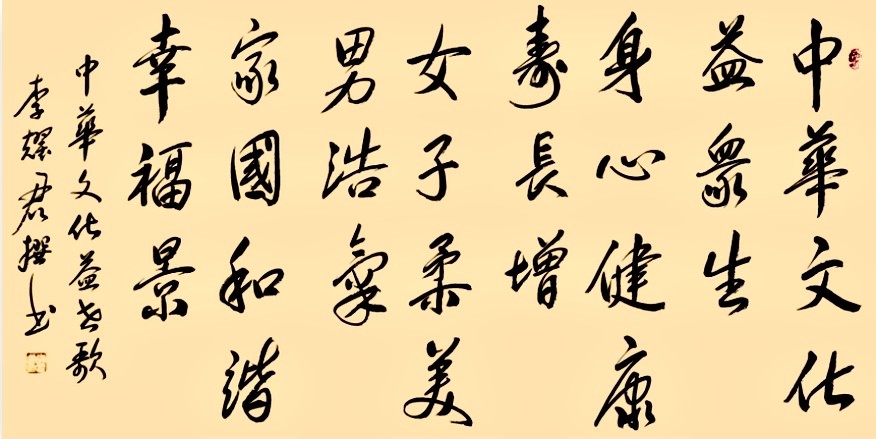 中華文化
益衆生
身心健康
壽長增
女子柔美
男浩氣
家國和諧
幸福景
中華文化益世歌
李耀君撰书